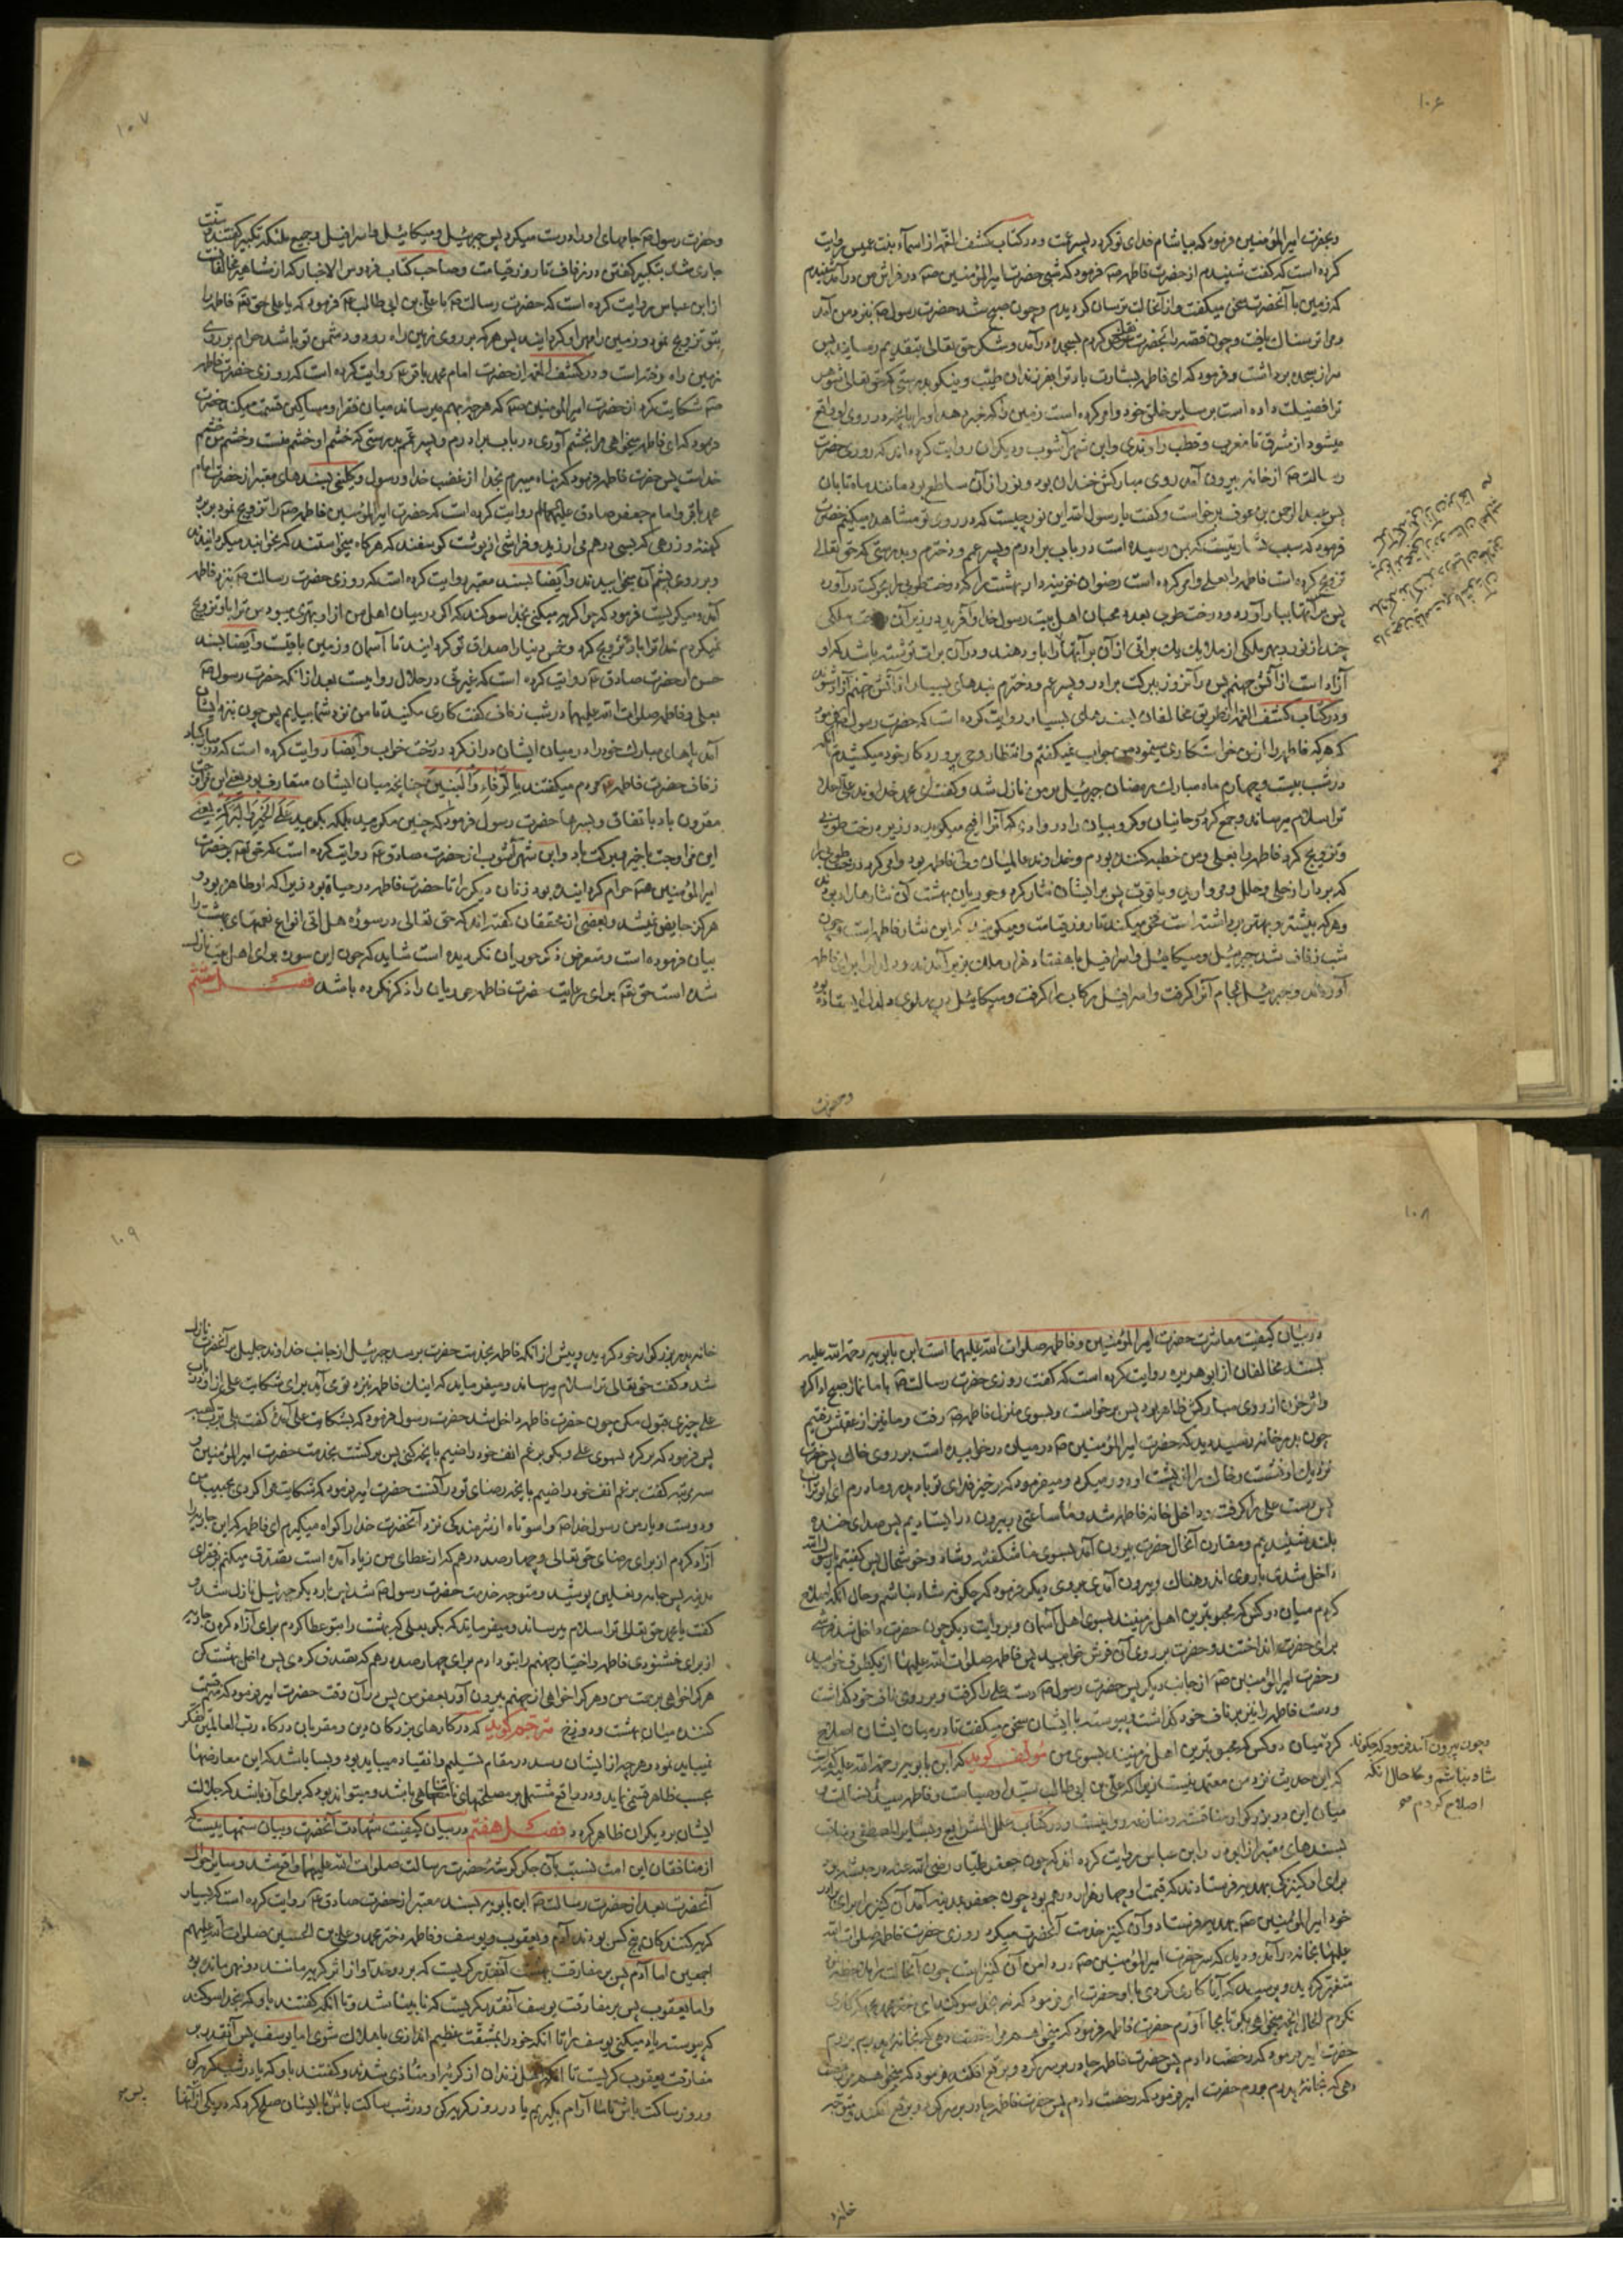 ۱۰۶
وبحضرت امیرالمؤمنین فرمود که بیاشام فدای تو کردد پسر عمت و در کتاب کشف الغمه از اسمآء بنت عمیس روایت
کرده است که کفت شنیدم از حضرت فاطمه صه فرمود که شبی حضرت امیرالمؤمنین صه در فراش من درآمد شنیدم
که زمین با آنحضرت سخن میکفت و از آنحالت ترسان کردیدم و چون صبح شد حضرت رسول صه بنزد من آمد
و مرا ترسناک یافت و چون قصه را بحضرت نقل کردم بسجده درآمد و شکر حق تعالی بتقدیم رسانید پس
سر از سجده برداشت و فرمود که ای فاطمه بشارت باد ترا بفرزندان طیب و نیکو بدرستی که حق تعالی شوهر
ترا فضیلت داده است بر سایر خلق خود و امر کرده است زمین را که خبر دهد او را بآنچه در روی او واقع
میشود از مشرق تا مغرب و قطب راوندی و ابن شهرآشوب و دیکران روایت کرده اند که روزی حضرت
رسالت صه از خانه بیرون آمد روی مبارکش خندان بود و نور از آن ساطع بود مانند ماه تابان
پس عبدالرحمن بن عوف برخواست و کفت یا رسول الله این نور چیست که در روی تو مشاهده میکنیم حضرت
فرمود که سبب بشارتیست که بمن رسیده است در باب برادرم و پسر عم و دخترم و بدرستی که حق تعالی
تزویج کرده است فاطمه را بعلی و امر کرده است رضوان خزینه دار بهشت را که درخت طوبی را بحرکت درآورد
پس براتها بیار آورد درخت طوبی بعدد محبان اهل بیت رسول خدا و آفرید در زیر آن درخت ملکی
چند از نور و بهر ملکی از ملایک یک براتی از آن براتها را باو دهند و در آن برات نوشته باشد که او
آزاد است از آتش جهنم پس در آنروز ببرکت برادر و پسر عم و دخترم بندهای بسیار از آتش جهنم آزاد شوند
و در کتاب کشف الغمه از طریق مخالفان بسندهای بسیار روایت کرده است که حضرت رسول صه فرمود
که هرکه فاطمه را از من خواستکاری مینمود من جواب نمیکفتم و انتظار وحی پروردکار خود میکشیدم تا آنکه
در شب بیست و چهارم ماه مبارک رمضان جبرئیل بر من نازل شد و کفت ای محمد خداوند علی اعلا
ترا سلام میرساند و جمع کرد روحانیان و کروبیان را در وادی که آنرا افیح میکویند در زیر درخت طوبی
و تزویج کرد فاطمه را بعلی و من خطبه کننده بودم و خداوند عالمیان ولی فاطمه بود و امر کرد درخت طوبی را
که بردار از حلی و حلل و مروارید و یاقوت پس بر ایشان نثار کرد و حوریان بهشت آن نثارها را ربودند
و هرکه بیشتر و بهتر برداشته است فخر میکند تا روز قیامت و میکویند که این نثار فاطمه است و چون
شب زفاف شد جبرئیل و میکائیل و اسرافیل با هفتاد هزار ملک بزیر آمدند و دلدل را برای فاطمه
آوردند و جبرئیل لجام آنرا کرفت و اسرافیل رکاب را کرفت و میکائیل در پهلوی دلدل ایستاده بود
وحضرت
۱۰۷
و حضرت رسول صه جامهای او را درست میکرد پس جبرئیل و میکائیل و اسرافیل و جمیع ملئکه تکبیر کفتند و سنت
جاری شد بتکبیر کفتن در زفاف تا روز قیامت و صاحب کتاب فردوس الاخبار که از مشاهیر مخالفانست
از ابن عباس روایت کرده است که حضرت رسالت صه با علی بن ابی طالب ع فرمود که یا علی حق تعالی فاطمه را
بتو تزویج نمود و زمین را مهر او کردانید پس هرکه بر روی زمین راه رود و دشمن تو باشد حرام بر روی
زمین راه رفته است و در کشف الغمه از حضرت امام محمد باقر ع روایت کرده است که روزی حضرت فاطمه
صه شکایت کرد از حضرت امیرالمؤمنین صه که هرچه بهم میرساند میان فقرا و مساکین قسمت میکند حضرت
فرمود که ای فاطمه میخواهی مرا بخشم آوری در باب برادرم و پسر عمم بدرستی که خشم او خشم منست و خشم من خشم
خداست پس حضرت فاطمه فرمود که پناه میبرم بخدا از غضب خدا و رسول و کلینی بسندهای معتبر از حضرت امام
محمد باقر و امام جعفر صادق علیهما السلام روایت کرده است که حضرت امیرالمؤمنین فاطمه صه را تزویج نمود ببرد
کهنه و زرهی که بسی درهم می ارزید و فراشی از پوست کوسفند که هرکاه میخواستند که بخوابند میکردانیدند
و بر روی پشم آن میخوابیدند و ایضا بسند معتبر روایت کرده است که روزی حضرت رسالت صه بنزد فاطمه
آمد و میکریست فرمود که چرا کریه میکنی بخدا سوکند که اکر در میان اهل من از او بهتری میبود من ترا باو تزویج
نمیکردم خدا ترا باو تزویج کرد و خمس دنیا را صداق تو کردانید تا آسمان و زمین باقیست و ایضا بسند
حسن از حضرت صادق ع روایت کرده است که غیرتی در حلال روا نیست بعد از آنکه حضرت رسول صه
بعلی و فاطمه صلوات الله علیهما در شب زفاف کفت کاری مکنید تا من نزد شما بیایم پس چون بنزد ایشان
آمد پاهای مبارک خود را در میان ایشان دراز کرد در تخت خواب و ایضا روایت کرده است که در مبارکباد
زفاف حضرت فاطمه ع مردم میکفتند بِالرَّفاءِ وَالْبَنینَ چنانچه میان ایشان متعارف بود یعنی این مزاوجت
مقرون باد باتفاق و پسرها حضرت رسول فرمود که چنین مکوئید بلکه بکوئید عَلَی الْخَیْرِ وَالْبَرَکَةِ یعنی
این مزاوجت با خیر و برکت باد و ابن شهرآشوب از حضرت صادق ع روایت کرده است که حق تعالی بر حضرت
امیرالمؤمنین صه حرام کردانیده بود زنان دیکر را تا حضرت فاطمه در حیاة بود زیرا که او طاهر بود و
هرکز حایض نمیشد و بعضی از محققان کفته اند که حق تعالی در سوره هل اتی انواع نعمتهای بهشت را
بیان فرموده است و متعرض ذکر حوریان نکردیده است شاید که چون این سوره برای اهل بیت نازل
شده است حق تعالی برای رعایت حضرت فاطمه حوریان را ذکر نکرده باشد فصل ششم
۱۰۸
در بیان کیفیت معاشرت حضرت امیرالمؤمنین و فاطمه صلوات الله علیهما است ابن بابویه رحمه الله علیه
بسند مخالفان از ابوهریره روایت کرده است که کفت روزی حضرت رسالت صه با ما نماز صبح ادا کرد
و اثر حزن از روی مبارکش ظاهر بود پس برخواست و بسوی منزل فاطمه صه رفت و ما نیز از عقبش رفتیم
چون بدر خانه رسید دید که حضرت امیرالمؤمنین صه در میان در خوابیده است بر روی خاک پس حضرت
نزدیک او نشست و خاک را از پشت او دور میکرد و میفرمود که برخیز فدای تو باد پدر و مادرم ای ابوتراب
پس دست علی را کرفت و داخل خانه فاطمه شد و ما ساعتی در بیرون در ایستادیم پس صدای خنده
بلند شنیدیم و مقارن آنحال حضرت بیرون آمد بسوی ما شکفته و شاد و خوشحال پس کفتیم یا رسول الله
داخل شدی با روی اندوهناک و بیرون آمدی بروی دیکر فرمود که چکونه شاد نباشم و حال آنکه اصلاح
کردم میان دو کس که محبوبترین اهل زمینند بسوی اهل آسمان و بروایت دیکر چون حضرت داخل شد فرشی
برای حضرت انداختند و حضرت بر روی آن فرش خوابید پس فاطمه صلوات الله علیها از یکطرف خوابید
و حضرت امیرالمؤمنین صه از جانب دیکر پس حضرت رسول صه دست علی را کرفت و بر روی ناف خود کذاشت
و دست فاطمه را نیز بر ناف خود کذاشت و پیوسته با ایشان سخن میکفت تا در میان ایشان اصلاح
کرد میان دو کس که محبوبترین اهل زمینند بسوی من مؤلف کوید که ابن بابویه رحمه الله علیه کفته است
که این حدیث نزد من معتمد نیست زیرا که علی بن ابی طالب سید اوصیاست و فاطمه سیدهٔ نساست و
میان این دو بزرکوار مناقشه و منازعه روا نیست و در کتاب علل الشرایع و بشایر المصطفی و مناقب
بسندهای معتبر از ابی ذر و ابن عباس روایت کرده اند که چون جعفر طیار رضی الله عنه در حبشه بود
برای او کنیزکی بهدیه فرستادند که قیمت او چهار هزار درهم بود چون جعفر بمدینه آمد آن کنیز را برای برادر
خود امیرالمؤمنین صه بهدیه فرستاد و آن کنیز خدمت آنحضرت میکرد روزی حضرت فاطمه صلوات الله
علیها بخانه درآمد و دید که سر حضرت امیرالمؤمنین صه در دامن آن کنیز است چون آنحالت را ملاحظه نمود
متغیر کردید و پرسید که آیا کاری کردی با او حضرت امیر فرمود که نه بخدا سوکند ای دختر محمد که کاری
نکردم الحال آنچه میخواهی بکو تا بجا آورم حضرت فاطمه فرمود که میخواهم مرا رخصت دهی که بخانه پدرم بروم
حضرت امیر فرمود که رخصت دادم پس حضرت فاطمه چادر بر سر کرد و برقع افکند
وچون بیرون آمد فرمود که چکونه
شاد نباشم و حال آنکه
اصلاح کردم صح
خانه
۱۰۹
خانه پدر بزرکوار خود کردید و پیش از آنکه فاطمه بخدمت حضرت برسد جبرئیل از جانب خداوند جلیل بر آنحضرت نازل
شد و کفت حق تعالی ترا سلام میرساند و میفرماید که اینک فاطمه بنزد تو می آید برای شکایت علی از او در باب
علی چیزی قبول مکن چون حضرت فاطمه داخل شد حضرت رسول فرمود که بشکایت علی آمدهٔ کفت بلی برب کعبه
پس فرمود که برکرد بسوی علی و بکو برغم انف خود راضیم بآنچه کنی پس برکشت بخدمت حضرت امیرالمؤمنین و
سه مرتبه کفت برغم انف خود راضیم بآنچه رضای تو در آنست حضرت امیر فرمود که شکایت مرا کردی بحبیب من
و دوست و یار من رسول خدا صه واسوأتاه از شرمندکی نزد آنحضرت خدا را کواه میکیرم ای فاطمه که این جاریه را
آزاد کردم از برای رضای حق تعالی و چهارصد درهم که از عطای من زیاد آمده است تصدق میکنم بر فقرای
مدینه پس جامه و نعلین پوشید و متوجه خدمت حضرت رسول صه شد پس بار دیکر جبرئیل نازل شد و
کفت یا محمد حق تعالی ترا سلام میرساند و میفرماید که بکو بعلی که بهشت را بتو عطا کردم برای آزاد کردن جاریه
از برای خشنودی فاطمه و اختیار جهنم را بتو دادم برای چهارصد درهم که تصدق کردی پس داخل بهشت کن
هرکرا خواهی برحمت من و هرکرا خواهی از جهنم بیرون آور بعفو من پس در آن وقت حضرت امیر فرمود که منم قسمت
کننده میان بهشت و دوزخ مترجم کوید که در کارهای بزرکان دین و مقربان درکاه رب العالمین تفکر
نمیباید نمود و هرچه از ایشان رسد در مقام تسلیم و انقیاد میباید بود و بسا باشد که این معارضها
بحسب ظاهر قبیح نماید و در واقع مشتمل بر مصلحتهای نامتناهی باشد و میتواند بود که برای آن باشد که جلالت
ایشان بر دیکران ظاهر کردد فصل هفتم در بیان کیفیت شهادت آنحضرت و بیان ستمهائیست که
از منافقان این امت نسبت بآن جکرکوشه حضرت رسالت صلوات الله علیهما واقع شد و سایر احوال
آنحضرت بعد از حضرت رسالت صه ابن بابویه بسند معتبر از حضرت صادق ع روایت کرده است که بسیار
کریه کنندکان پنج کس بودند آدم و یعقوب و یوسف و فاطمه دختر محمد و علی بن الحسین صلوات الله علیهم
اجمعین اما آدم پس بر مفارقت بهشت آنقدر کریست که بر دو خد او از اثر کریه مانند دو نهر مانده بود
و اما یعقوب پس بر مفارقت یوسف آنقدر بکریست که نابینا شد و تا آنکه کفتند باو که بخدا سوکند
که پیوسته یاد میکنی یوسف را تا آنکه خود را بمشقت عظیم اندازی یا هلاک شوی اما یوسف پس آنقدر بر
مفارقت یعقوب کریست تا آنکه اهل زندان از کریهٔ او متأذی شدند و کفتند باو که یا در شب کریه کن
و روز ساکت باش تا ما آرام بکیریم یا در روز کریه کن و در شب ساکت باش با ایشان صلح کرد که در یکی از آنها